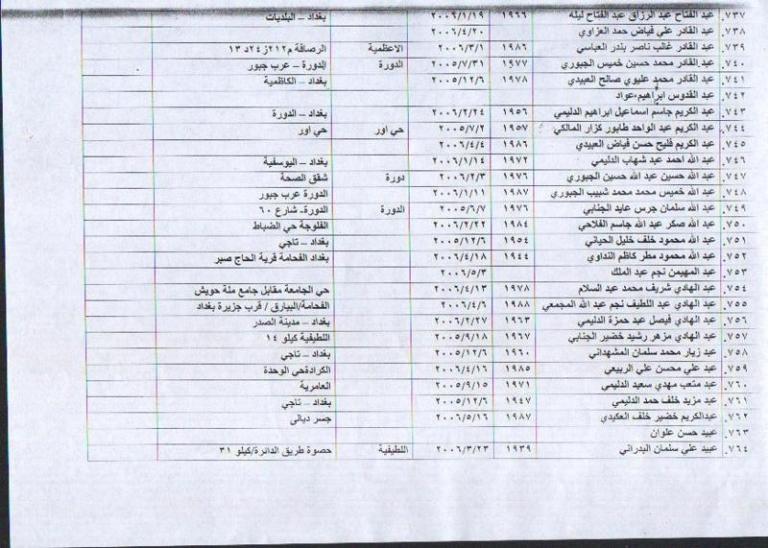 ٧٣٧. عبد الفتاح عبد الرزاق عبد الفتاح ليله ١٩٦٦ ٢٠٠٦/١/١٩ بغداد – البلديات
٧٣٨. عبد القادر علي فياض حمد العزاوي ٢٠٠٦/٤/٢٠
٧٣٩. عبد القادر غالب ناصر بندر العباسي ١٩٨٦ ٢٠٠٦/٣/١ الاعظمية الرصافة م٢١٢ز٢٤د١٣
٧٤٠. عبد القادر محمد حسين خميس الجبوري ١٩٧٧ ٢٠٠٥/٧/٣١ الدورة الدورة – عرب جبور
٧٤١. عبد القادر محمد عليوي صالح العبيدي ١٩٧٨ ٢٠٠٥/١٢/٦ بغداد – الكاظمية
٧٤٢. عبد القدوس ابراهيم عواد
٧٤٣. عبد الكريم جاسم اسماعيل ابراهيم الدليمي ١٩٥٦ ٢٠٠٦/٢/٢٤ بغداد – الدورة
٧٤٤. عبد الكريم عبد الواحد طابور كزار المالكي ١٩٥٧ ٢٠٠٥/٧/٢ حي اور حي اور
٧٤٥. عبد الكريم فليح حسن فياض العبيدي ١٩٨٦ ٢٠٠٦/٤/٤
٧٤٦. عبد الله احمد عبد شهاب الدليمي ١٩٧٢ ٢٠٠٦/١/١٤ بغداد – اليوسفية
٧٤٧. عبد الله حسين عبد الله حسين الجبوري ١٩٧٦ ٢٠٠٦/٢/٣ دورة شقق الصحة
٧٤٨. عبد الله خميس محمد محمد شبيب الجبوري ١٩٨٧ ٢٠٠٦/١/١١ الدورة عرب جبور
٧٤٩. عبد الله سلمان جرس عايد الجنابي ١٩٧٦ ٢٠٠٥/٦/٧ الدورة الدورة- شارع ٦٠
٧٥٠. عبد الله صكر عبد الله جاسم الفلاحي ١٩٨٤ ٢٠٠٦/٢/٢٢ الفلوجة حي الضباط
٧٥١. عبد الله محمود خلف خليل الحياني ١٩٥٤ ٢٠٠٥/١٢/٦ بغداد – تاجي
٧٥٢. عبد الله محمود مطر كاظم النداوي ١٩٤٤ ٢٠٠٦/٤/١٨ بغداد الفحامة قرية الحاج صبر
٧٥٣. عبد المهيمن نجم عبد الملك ٢٠٠٦/٥/٣
٧٥٤. عبد الهادي شريف محمد عبد السلام ١٩٧٨ ٢٠٠٦/٤/١٣ حي الجامعة مقابل جامع ملة حويش
٧٥٥. عبد الهادي عبد اللطيف نجم عبد الله المجمعي ١٩٨٨ ٢٠٠٦/٤/٦ الفحامة/البيارق / قرب جزيرة بغداد
٧٥٦. عبد الهادي فيصل عبد حمزة الدليمي ١٩٦٣ ٢٠٠٦/٢/٢٧ بغداد – مدينة الصدر
٧٥٧. عبد الهادي مزهر رشيد خضير الجنابي ١٩٦٧ ٢٠٠٥/٩/١٨ اللطيفية كيلو ١٤
٧٥٨. عبد زيار محمد سلمان المشهداني ١٩٦٠ ٢٠٠٥/١٢/٦ بغداد – تاجي
٧٥٩. عبد علي محسن علي الربيعي ١٩٨٥ ٢٠٠٦/٤/١٦ الكرادةحي الوحدة
٧٦٠. عبد متعب مهدي سعيد الدليمي ١٩٧١ ٢٠٠٥/٩/١٥ العامرية
٧٦١. عبد مزيد خلف حمد الدليمي ١٩٤٧ ٢٠٠٥/١٢/٦ بغداد – تاجي
٧٦٢. عبدالكريم خضير خلف العكيدي ١٩٨٧ ٢٠٠٦/٥/١٦ جسر ديالى
٧٦٣. عبيد حسن علوان
٧٦٤. عبيد علي سلمان البدراني ١٩٣٩ ٢٠٠٦/٣/٢٣ اللطيفية حصوة طريق الدائرة/كيلو ٣١